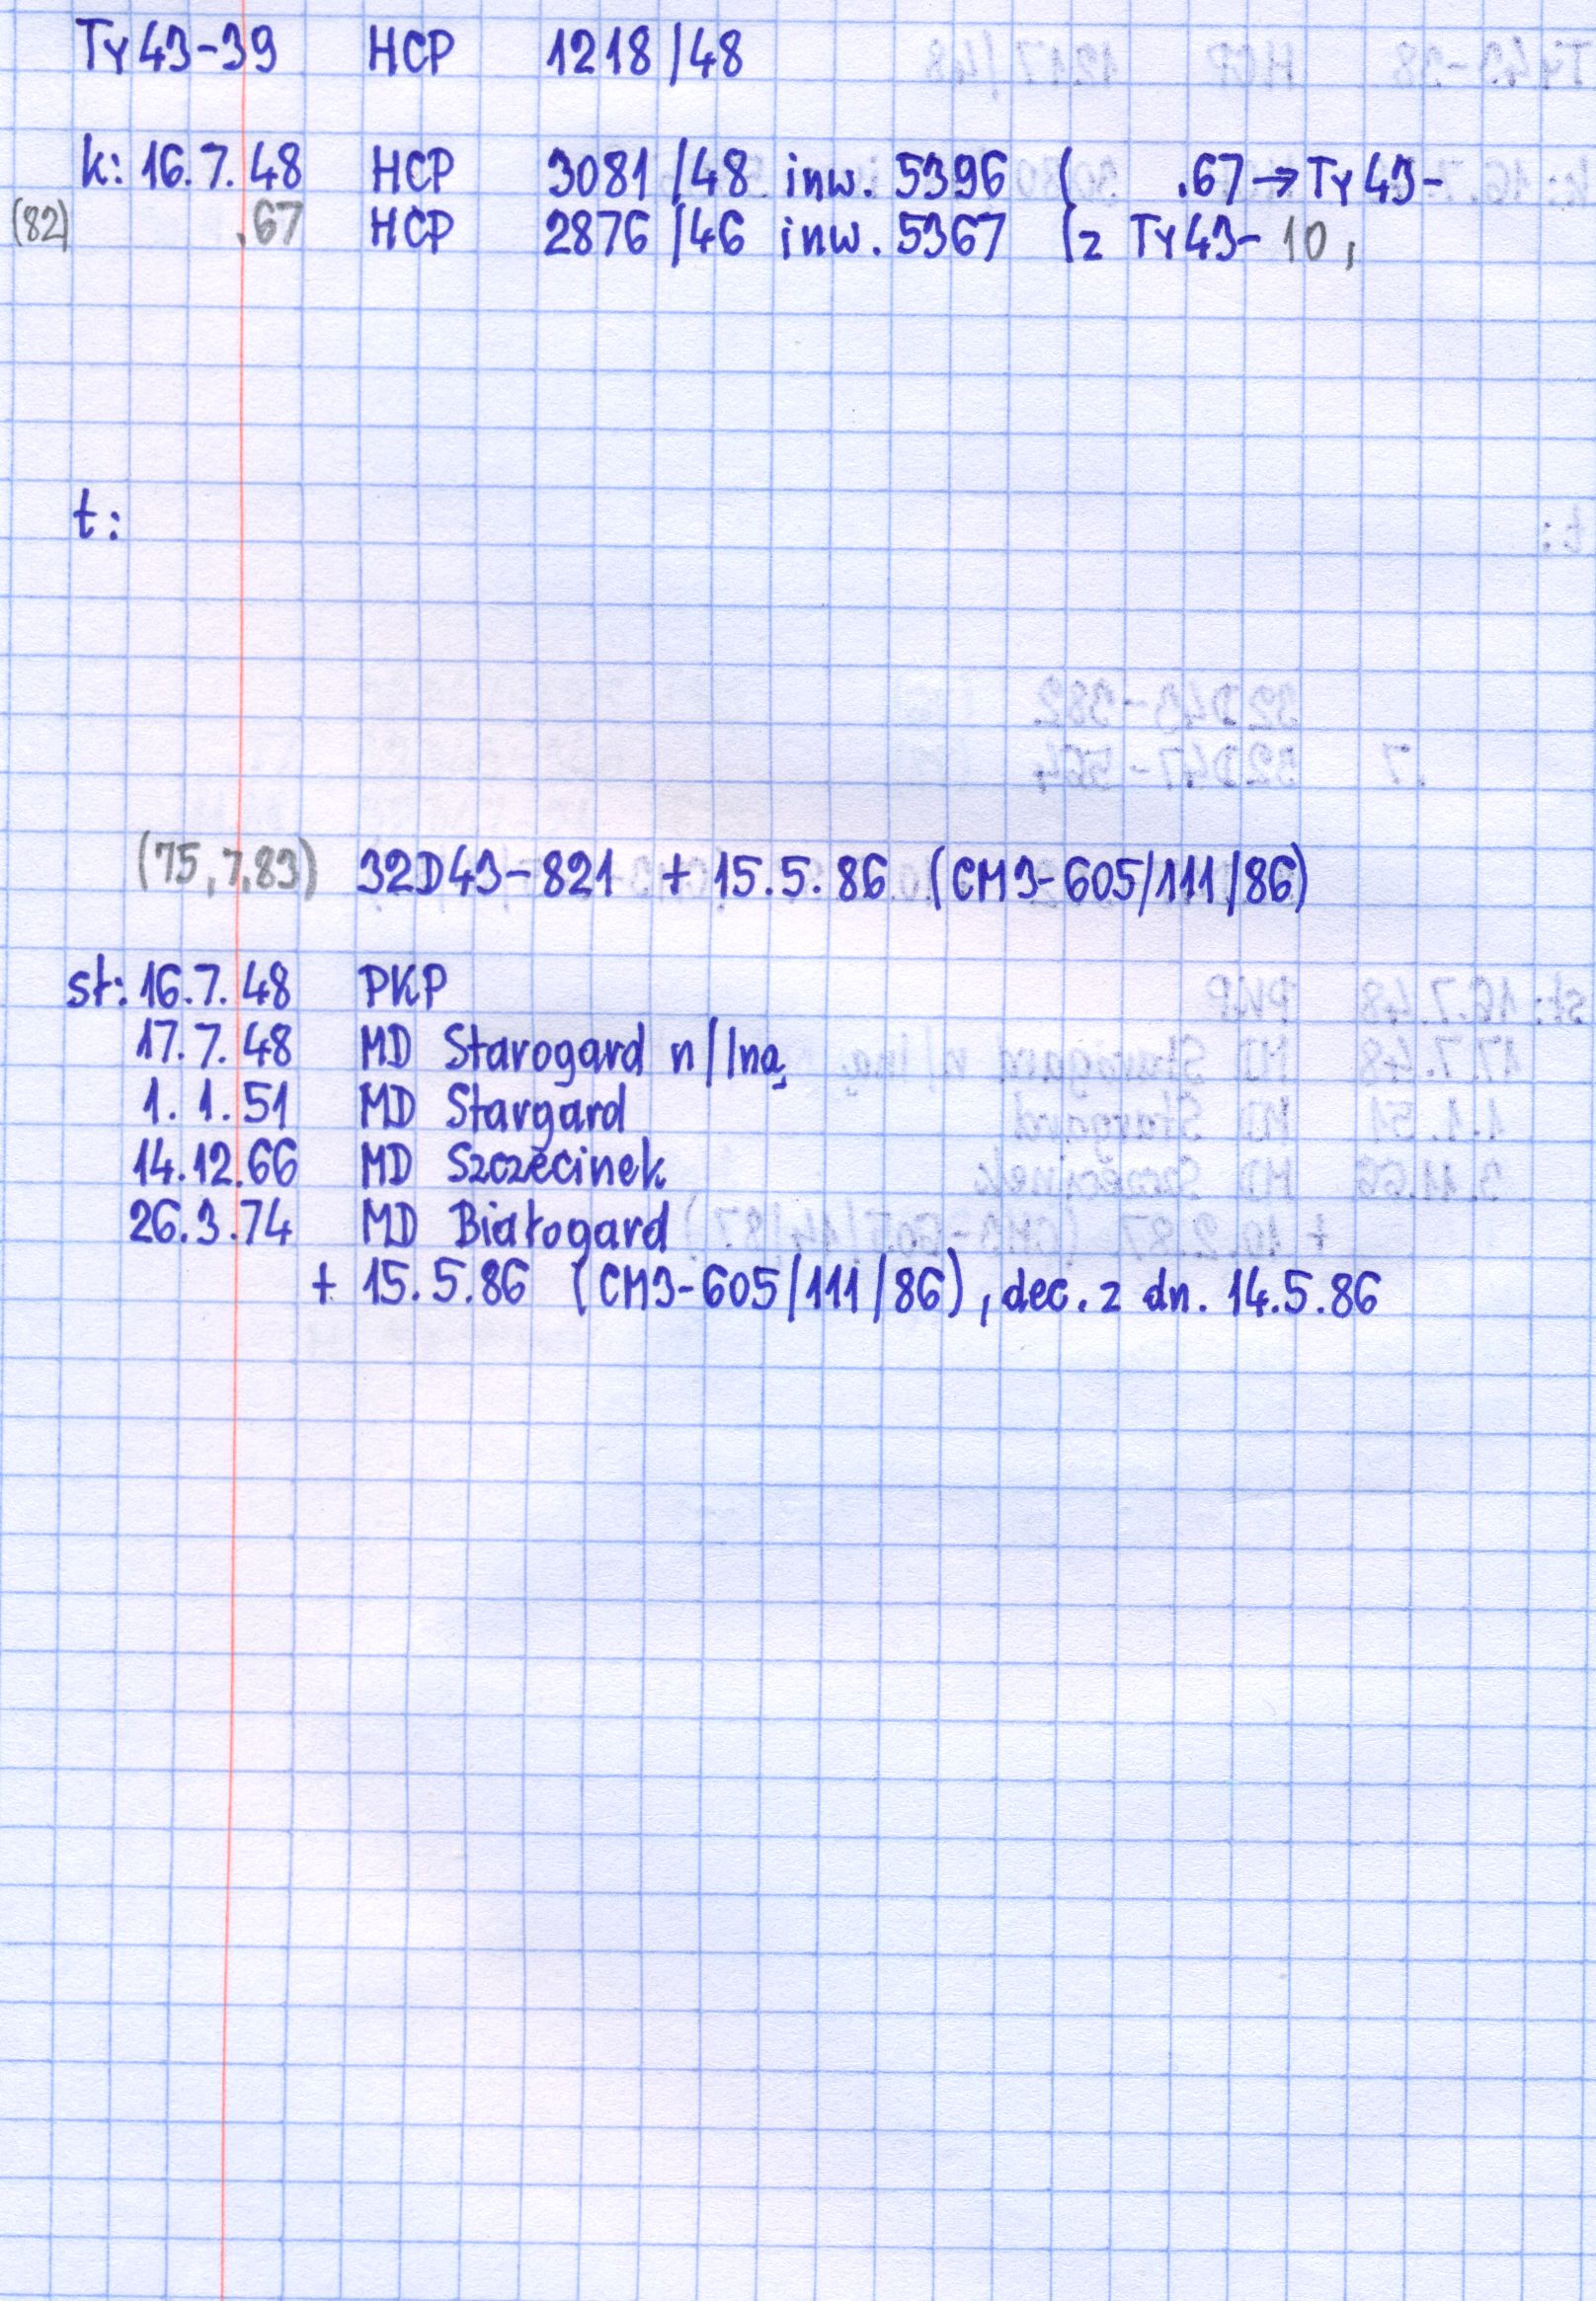 Ty43-39 HCP 1218/48
k: 16.7.48 HCP 3081/48 inw. 5396 ( .67→Ty43-
(82) .67 HCP 2876/46 inw. 5367 (z Ty43- 10,
t:
(75,7.83) 32D43-821 + 15.5.86 (CM3-605/111/86)
st: 16.7.48 PKP
17.7.48 MD Starogard n/Iną
1.1.51 MD Stargard
14.12.66 MD Szczecinek
26.3.74 MD Białogard
+ 15.5.86 (CM3-605/111/86), dec. z dn. 14.5.86